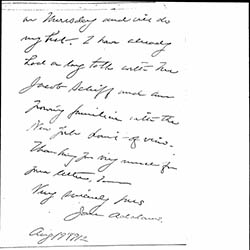 on Thursday and will do
my best. I have already
had a long talk with Mr
Jacob Schiff and am
growing familiar with the
New York point-of-view.
Thanking you very much for
your letter, I am
Very sincerely yours
Jane Addams
Aug 19 1912